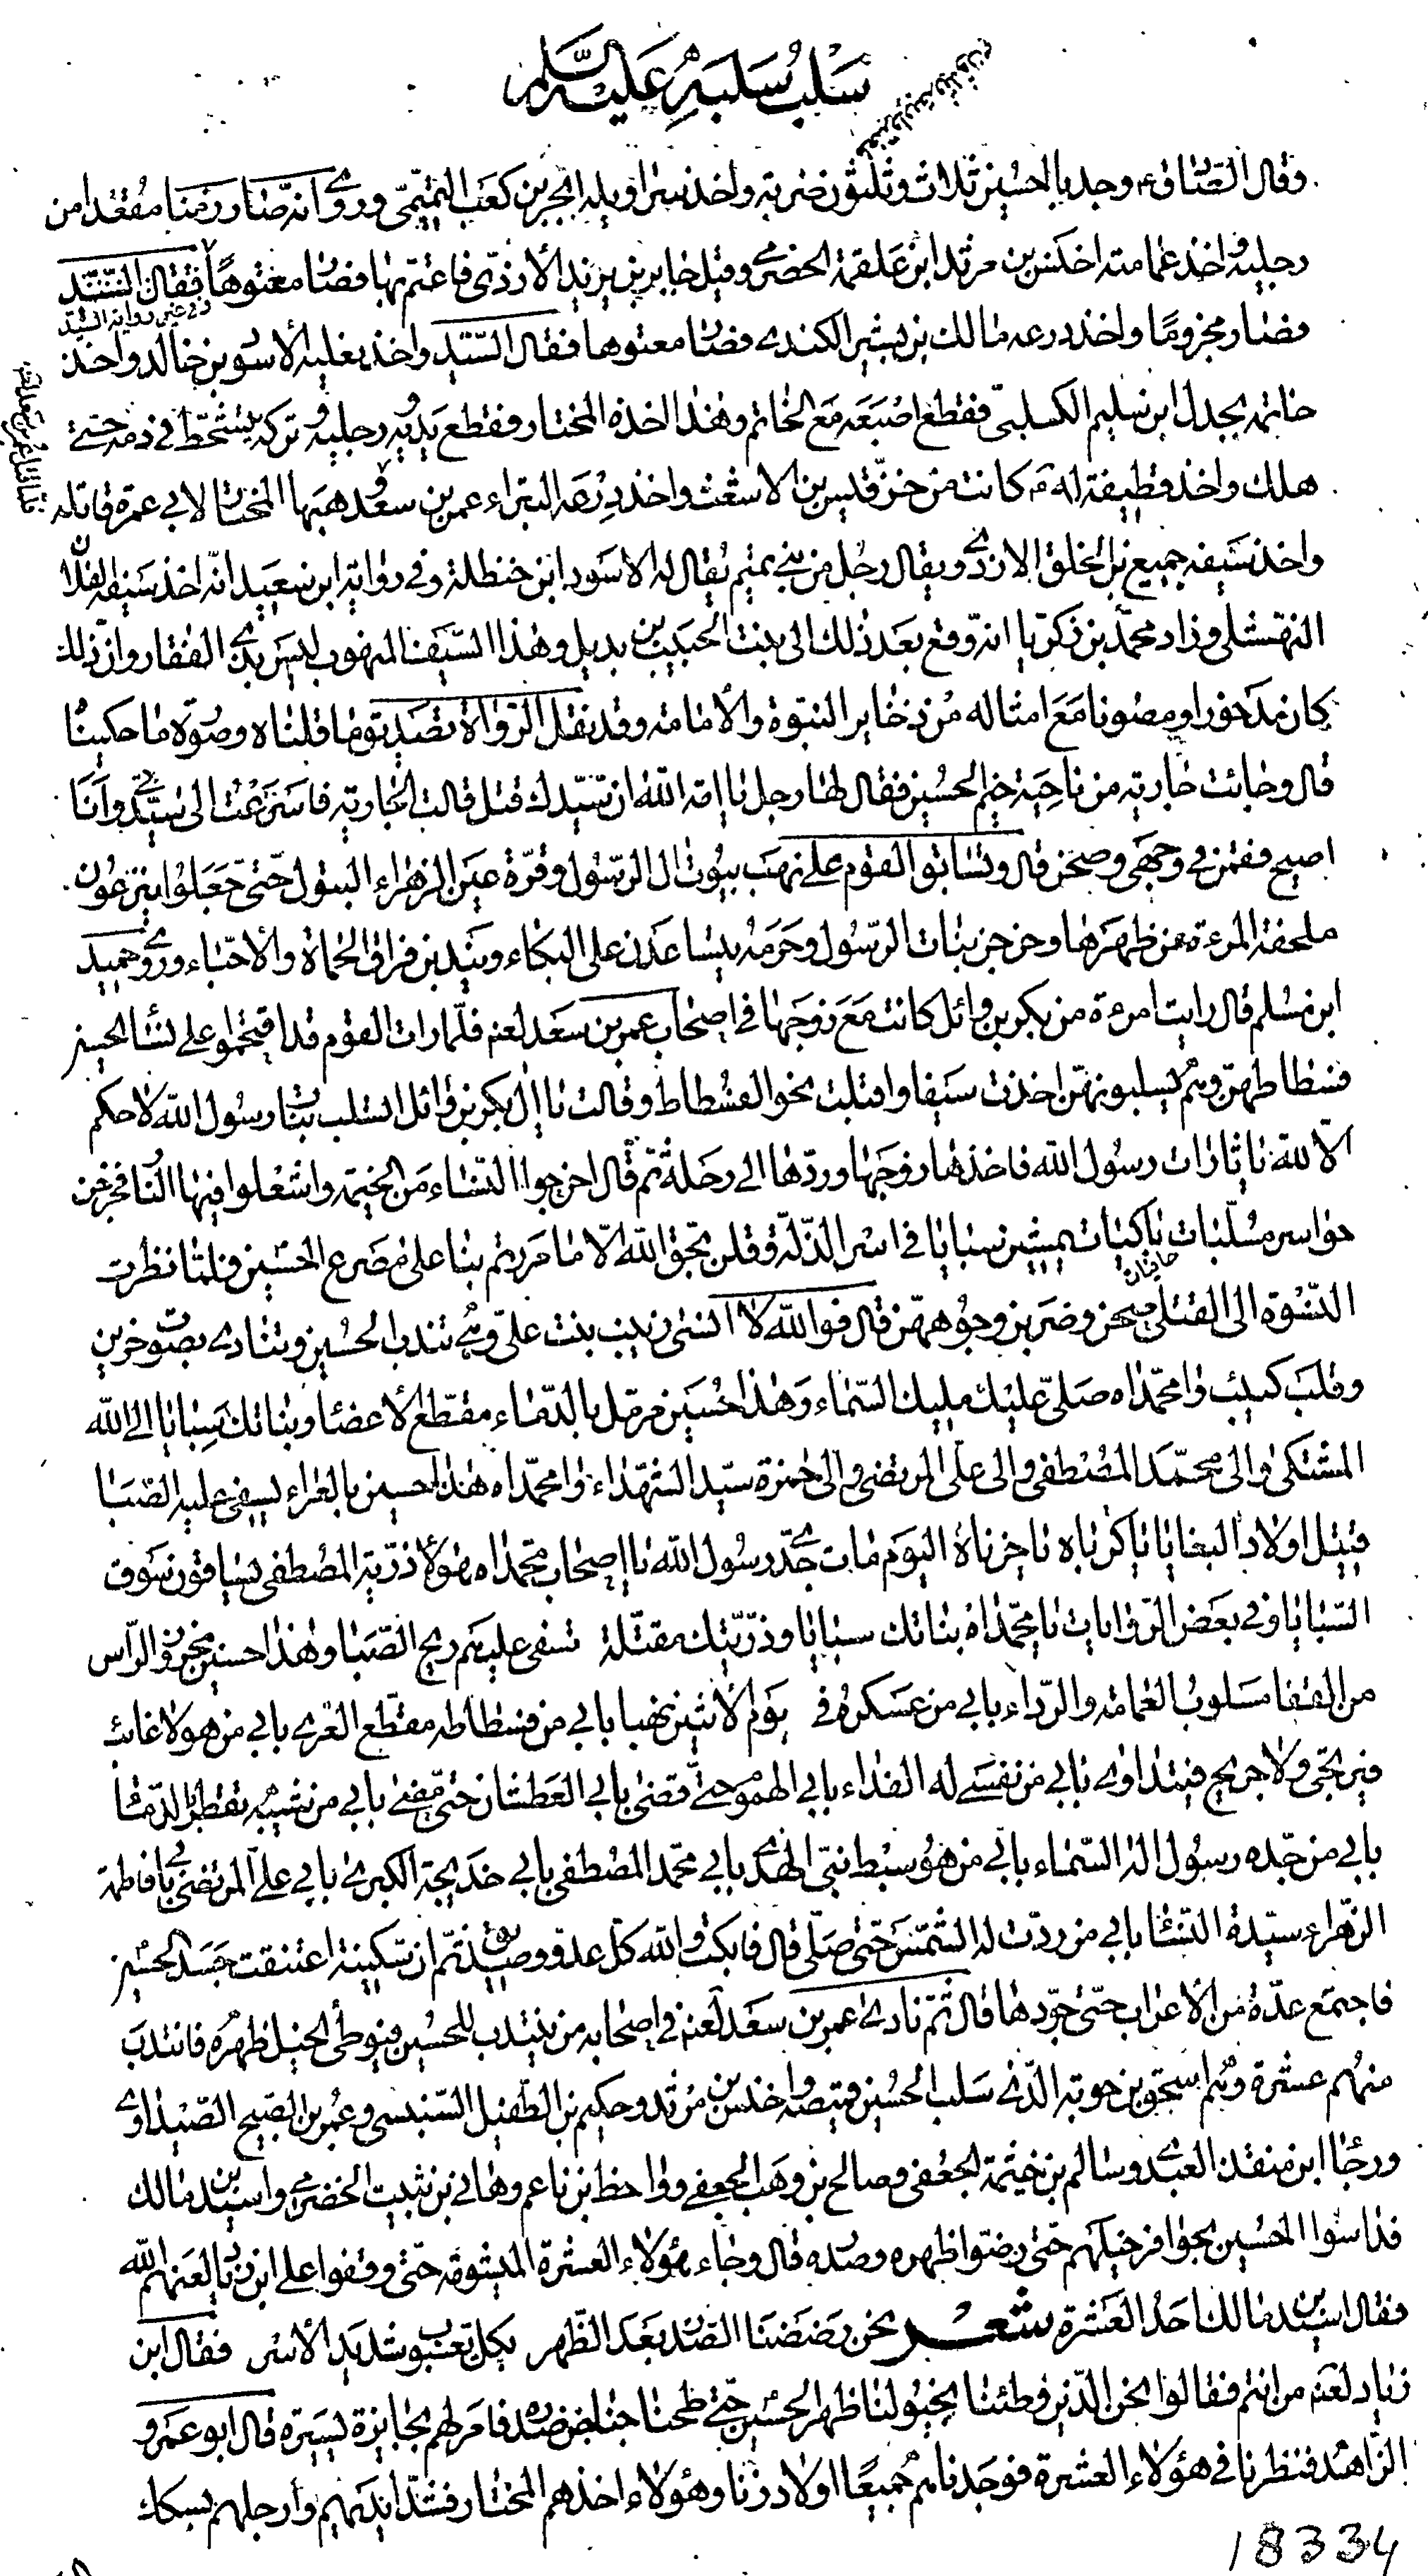 سلب سلبه عليه السلام
وقال الصادق ع وجد بالحسين ثلاث وثلثون ضربة واخذ سراويله ابجر بن كعب التميمي وروي انه صار زمنا مقعدا من
رجليه واخذ عمامته اخنس بن مرثد ابن علقمة الحضرمي وقيل جابر بن يزيد الأزدي فاعتم بها فصار معتوها فقال السيد
وفي غير رواية السيد
فصار مجزوما واخذ درعه مالك بن بشير الكندي فصار معتوها فقال السيد واخذ نعليه الأسود بن خالد واخذ
خاتمه بجدل ابن سليم الكلبي فقطع اصبعه مع الخاتم وهذا اخذه المختار فقطع يديه ورجليه وتركه يتشحط في دمه حتى
هلك واخذ قطيفة له ع كانت من خز قيس بن الاشعث واخذ درعه البتراء عمر بن سعد وهبها المختار لابي عمرة قاتله
واخذ سيفه جميع بن الخلق الازدي ويقال رجل من بني تميم يقال له الاسود ابن حنظلة وفي رواية ابن سعيد انه اخذ سيفه الفلان
النهشلي وزاد محمد بن زكريا انه وقع بعد ذلك الى بنت الحبيب بن بديل وهذا السيف المنهوب ليس بذي الفقار وان ذلك
كان مذخورا ومصونا مع امثاله من ذخاير النبوة والامامة وقد نقل الرواة تصديق ما قلناه وصورة ما حكيناه
قال وجائت جارية من ناحية خيم الحسين فقال لها رجل يا امة الله ان سيدك قتل قالت الجارية فاسرعت الى سيدتي وانا
اصيح فقمن في وجهي وصحن قال وتسابق القوم على نهب بيوت ال الرسول وقرة عين الزهراء البتول حتى جعلوا ينزعون
ملحفة المرءة عن ظهرها وخرجن بنات الرسول وحرمه يتساعدن على البكاء ويندبن فراق الحماة والأحباء وروي حميد
ابن مسلم قال رايت امرءة من بكر بن وائل كانت مع زوجها في اصحاب عمر بن سعد لعنه فلما رات القوم قد اقتحموا على نساء الحسين
فسطاطهن وهم يسلبونهن اخذت سيفا واقبلت نحو الفسطاط وقالت يا ال بكر بن وائل السلب بنات رسول الله لا حكم
الا لله يا ثارات رسول الله فاخذها زوجها وردها الى رحله ثم قال اخرجوا النساء من الخيمة واشعلوا فيها النار فخرجن
حواسر مسلبات حافيات باكيات يمشين سبايا في اسر الذلة وقلن بحق الله الا ما مررتم بنا على مصرع الحسين فلما نظرت
النسوة الى القتلى صحن وضربن وجوههن قال فوالله لا انسى زينب بنت علي وهي تندب الحسين وتنادي بصوت حزين
وقلب كئيب وا محمداه صلى عليك مليك السماء وهذا حسين مرمل بالدماء مقطع الأعضاء وبناتك سبايا الى الله
المشتكى والى محمد المصطفى والى علي المرتضى والى حمزة سيد الشهداء وا محمداه هذا حسين بالعراء يسفي عليه الصبا
قتيل اولاد البغايا يا كرباه يا حزناه اليوم مات جدي رسول الله يا اصحاب محمداه هؤلاء ذرية المصطفى يساقون سوق
السبايا وفي بعض الروايات يا محمداه بناتك سبايا وذريتك مقتلة تسفي عليهم ريح الصبا وهذا حسين مجزوز الراس
من القفا مسلوب العمامة والرداء بابي من عسكره في يوم الاثنين نهبا بابي من فسطاطه مقطع العرى بابي من هو لا غائب
فيرتجى ولا جريح فيتداوى بابي من نفسي له الفداء بابي الهموم حتى قضى بابي العطشان حتى مضى بابي من شيبه تقطر بالدماء
بابي من جده رسول اله السماء بابي من هو سبط نبي الهدى بابي محمد المصطفى بابي خديجة الكبرى بابي علي المرتضى بابي فاطمة
الزهراء سيدة النساء بابي من ردت له الشمس حتى صلى قال فابكت والله كل عدو وصديق ثم ان سكينة اعتنقت جسد الحسين
فاجتمع عدة من الاعراب حتى جروها قال ثم نادى عمر بن سعد لعنه في اصحابه من ينتدب للحسين فيوطئ الخيل ظهره فانتدب
منهم عشرة وهم اسحق بن حوية الذي سلب الحسين قميصه واخنس بن مرثد وحكيم بن الطفيل السنبسي وعمر بن الصبيح الصيداوي
ورجا ابن منقذ العبدي وسالم بن خيثمة الجعفي وصالح بن وهب الجعفي وواحظ بن ناعم وهاني بن ثبيت الحضرمي واسيد بن مالك
فداسوا الحسين بحوافر خيلهم حتى رضوا ظهره وصدره قال وجاء هؤلاء العشرة حتى وقفوا على ابن زياد لعنهم الله
فقال اسيد بن مالك احد العشرة شعر نحن رضضنا الصدر بعد الظهر بكل يعبوب شديد الأسر فقال ابن
زياد لعنه من انتم فقالوا نحن الذين وطئنا بخيولنا ظهر الحسين حتى طحنا جناجن صدره فامر لهم بجايزة يسيرة قال ابو عمرو
الزاهد فنظرنا في هؤلاء العشرة فوجدناهم جميعا اولاد زنا وهؤلاء اخذهم المختار فشد ايديهم وأرجلهم بسكك
18334